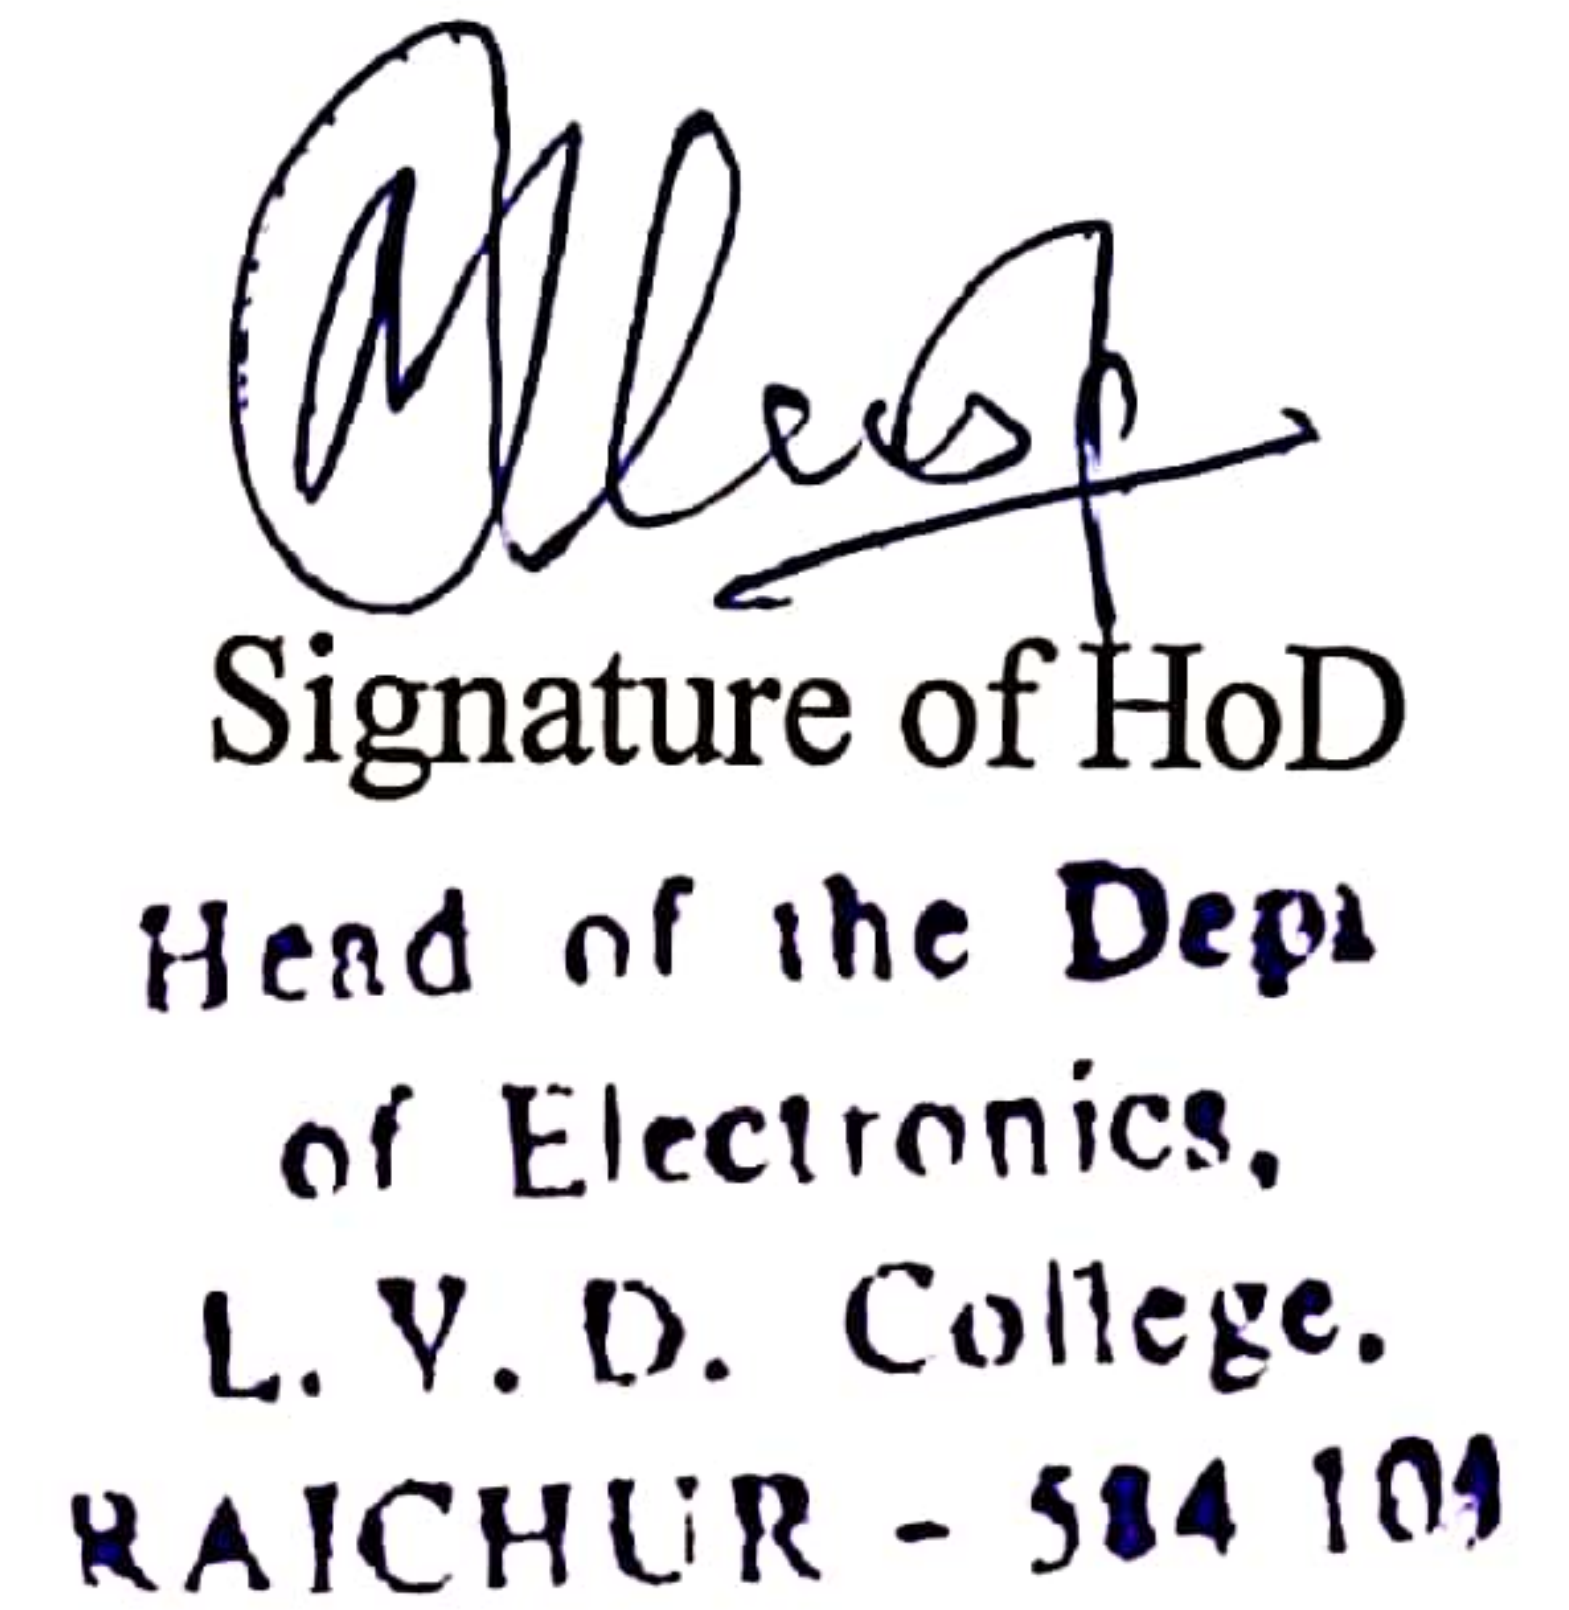 Signature of HoD
Head of the Dept
of Electronics,
L. V. D. College.
RAICHUR - 584 101